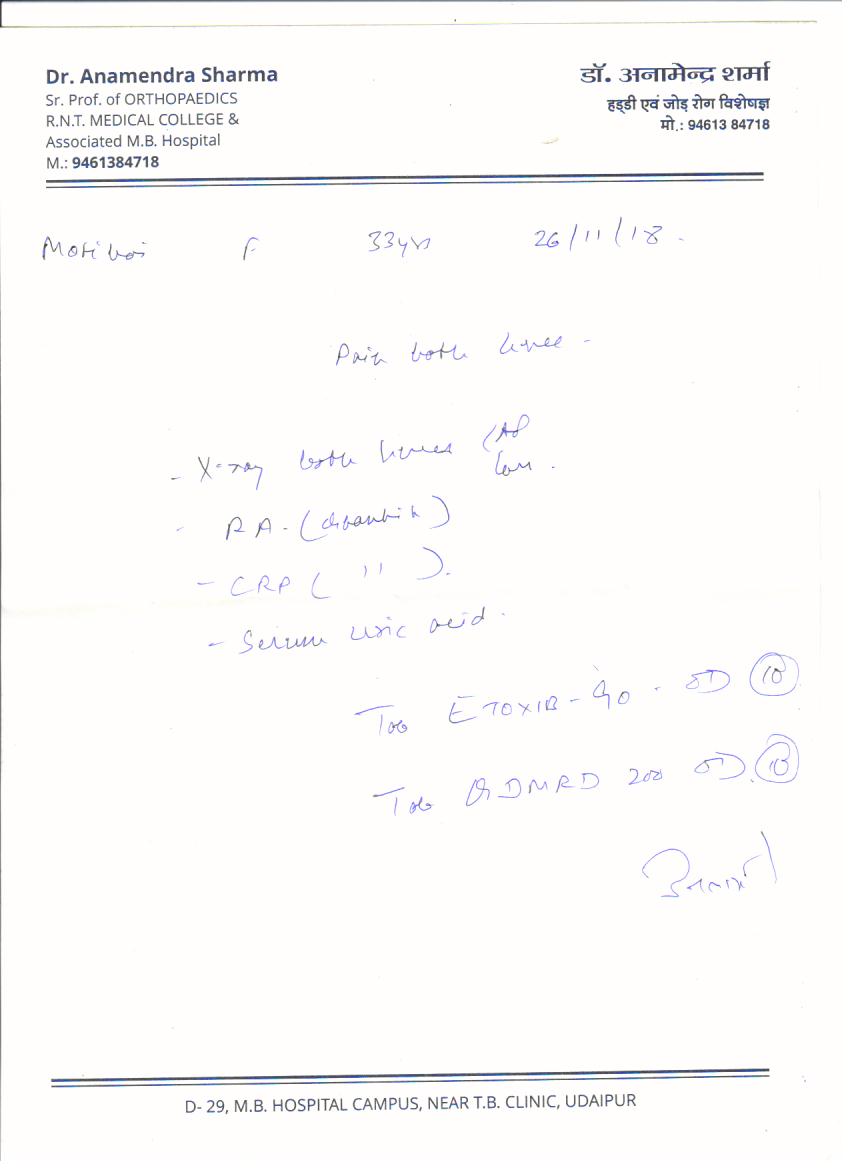 Dr. Anamendra Sharma
Sr. Prof. of ORTHOPAEDICS
R.N.T. MEDICAL COLLEGE &
Associated M.B. Hospital
M.: 9461384718
डॉ. अनामेन्द्र शर्मा
हड्डी एवं जोड़ रोग विशेषज्ञ
मो.: 94613 84718
Motibai F 33yrs 26/11/18.
Pain both knee -
- X-ray both knees (AP
Lat.
- RA - (
- CRP ( " ).
- Serum uric acid.
Tab ETOXIB-90 - OD (10)
Tab 200 OD (10)
D- 29, M.B. HOSPITAL CAMPUS, NEAR T.B. CLINIC, UDAIPUR